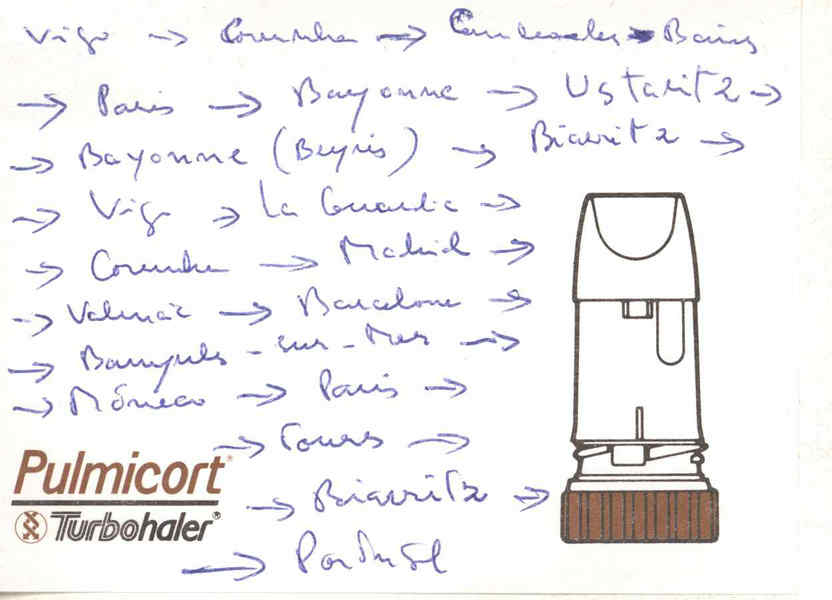 Vigo → Corunha → → Bains
→ Paris → Bayonne → Ustaritz →
→ Bayonne (Beyris) → Biarritz →
→ Vigo → La Guardia →
→ Corunha → Madrid →
→ Valencia → Barcelone →
→ Banyuls-sur-Mer →
→ Mónaco → Paris →
→ Tours →
→ Biarritz →
→ Portugal
Pulmicort®
Turbohaler®